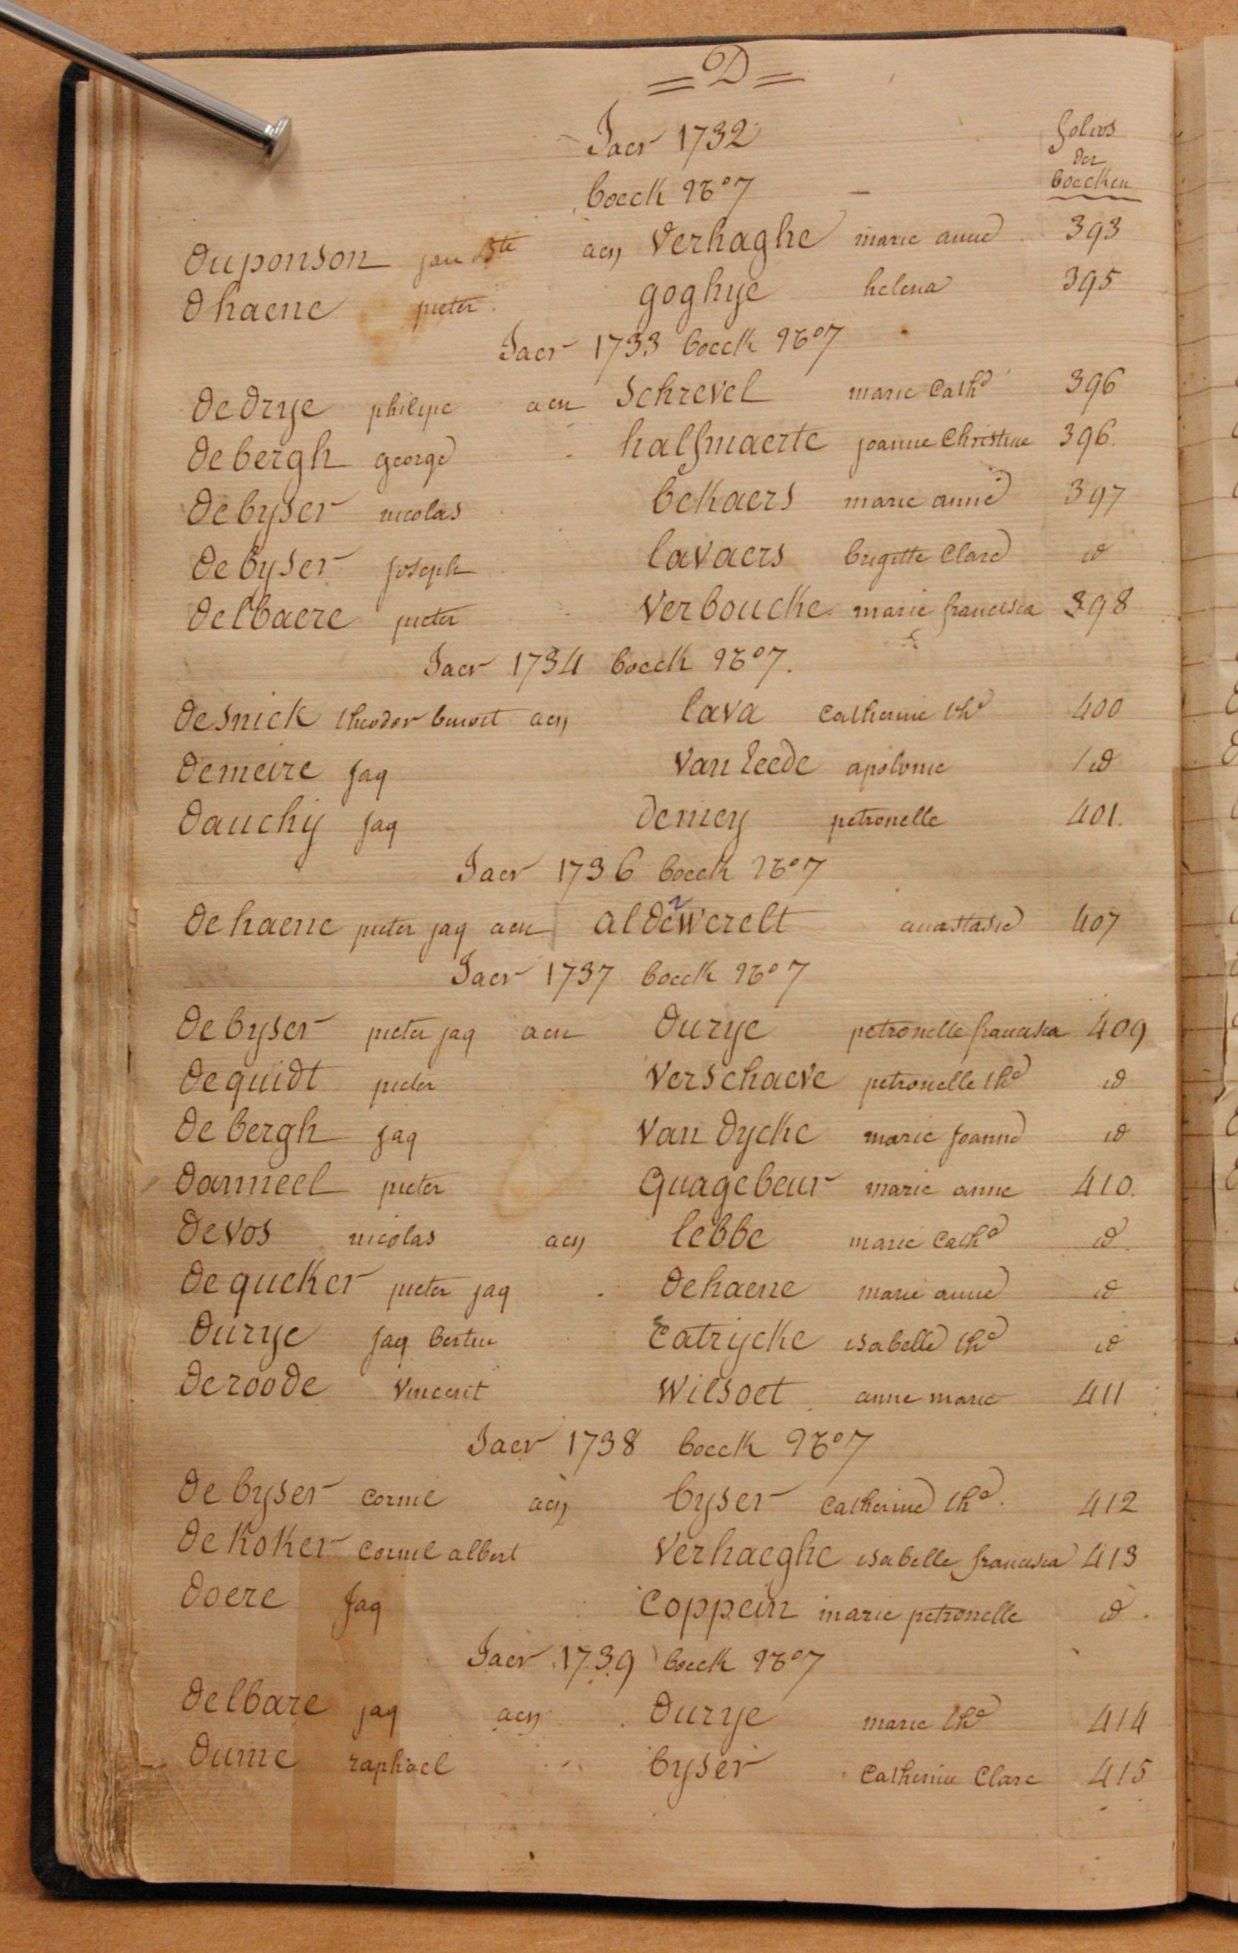 = D =
Jaer 1732
folios
der
boecken
boeck N° 7
duponson jan Bte aen Verhaghe marie anne 393
dhaene pieter goghye helena 395
Jaer 1733 boeck N° 7
de drye philipe aen Schrevel marie Cathe 396
de bergh george halfmaerte joanne Christine 396
de byser nicolas bekaers marie anne 397
de byser joseph lavaers brigitte Clare id
delbaere pieter Verboucke marie francisca 398
Jaer 1734 boeck N° 7.
desnick theodor benoit aen lava Catherine the 400
demeire jaq Van leede apolonie id
dauchy jaq demey petronelle 401.
Jaer 1736 boeck N° 7
de haene pieter jaq aen aldewerelt anastasie 407
Jaer 1737 boeck N° 7
de byser pieter jaq aen durye petronelle francisca 409
de quidt pieter Verschaeve petronelle the id
de bergh jaq Van dycke marie joanne id
danneel pieter Quagebeur marie anne 410.
devos nicolas aen lebbe marie Cathe id
de queker pieter jaq dehaene marie anne id
durye jaq bertin Catrycke isabelle the id
de roode Vincent Wilsoet anne marie 411
Jaer 1738 boeck N° 7
de byser Cornil aen byser Catherine the. 412
de Koker Cornil albert Verhaeghe isabelle francisca 413
doere jaq Coppein marie petronelle id
Jaer 1739 boeck N° 7
delbare jaq aen durye marie the 414
dume raphael byser Catherine Clare 415